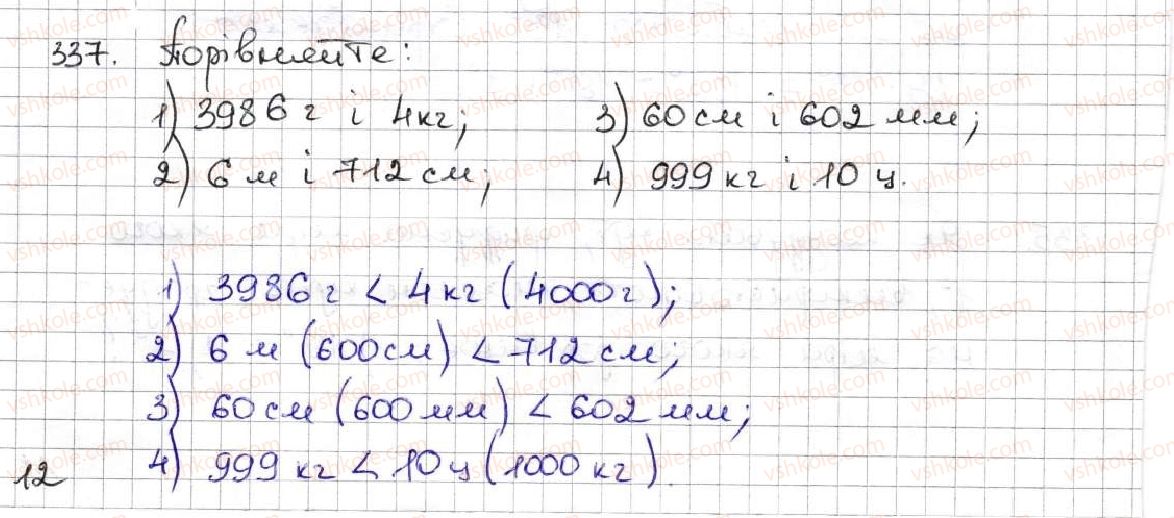 337. Порівняйте:
1) 3986 г і 4 кг; 3) 60 см і 602 мм;
2) 6 м і 712 см; 4) 999 кг і 10 ц.
1) 3986 г < 4 кг (4000 г);
2) 6 м (600 см) < 712 см;
3) 60 см (600 мм) < 602 мм;
4) 999 кг < 10 ц (1000 кг).
12
vshkole.com